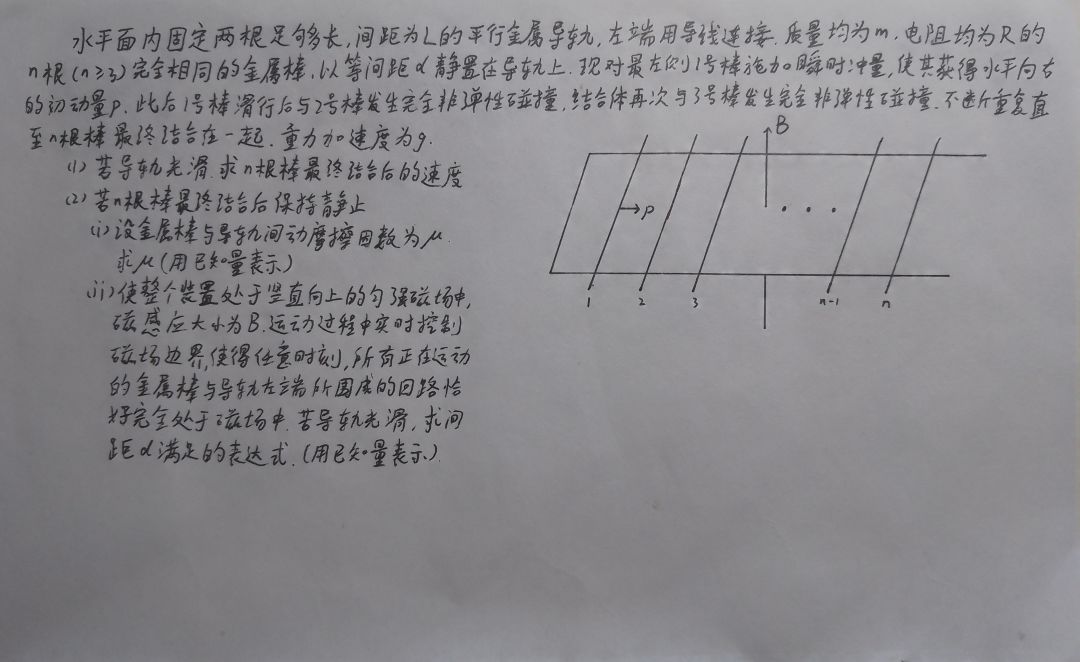 水平面内固定两根足够长,间距为L的平行金属导轨,左端用导线连接.质量均为m.电阻均为R的
n根(n≥3)完全相同的金属棒,以等间距d静置在导轨上.现对最左侧1号棒施加瞬时冲量,使其获得水平向右
的初动量p.此后1号棒滑行后与2号棒发生完全非弹性碰撞.结合体再次与3号棒发生完全非弹性碰撞.不断重复直
至n根棒最终结合在一起.重力加速度为g.
(1)若导轨光滑.求n根棒最终结合后的速度
(2)若n根棒最终结合后保持静止
(i)设金属棒与导轨间动摩擦因数为μ.
求μ(用已知量表示)
(ii)使整个装置处于竖直向上的匀强磁场中,
磁感应大小为B.运动过程中实时控制
磁场边界,使得任意时刻,所有正在运动
的金属棒与导轨左端所围成的回路恰
好完全处于磁场中.若导轨光滑,求间
距d满足的表达式.(用已知量表示)
B
p
1 2 3 n-1 n